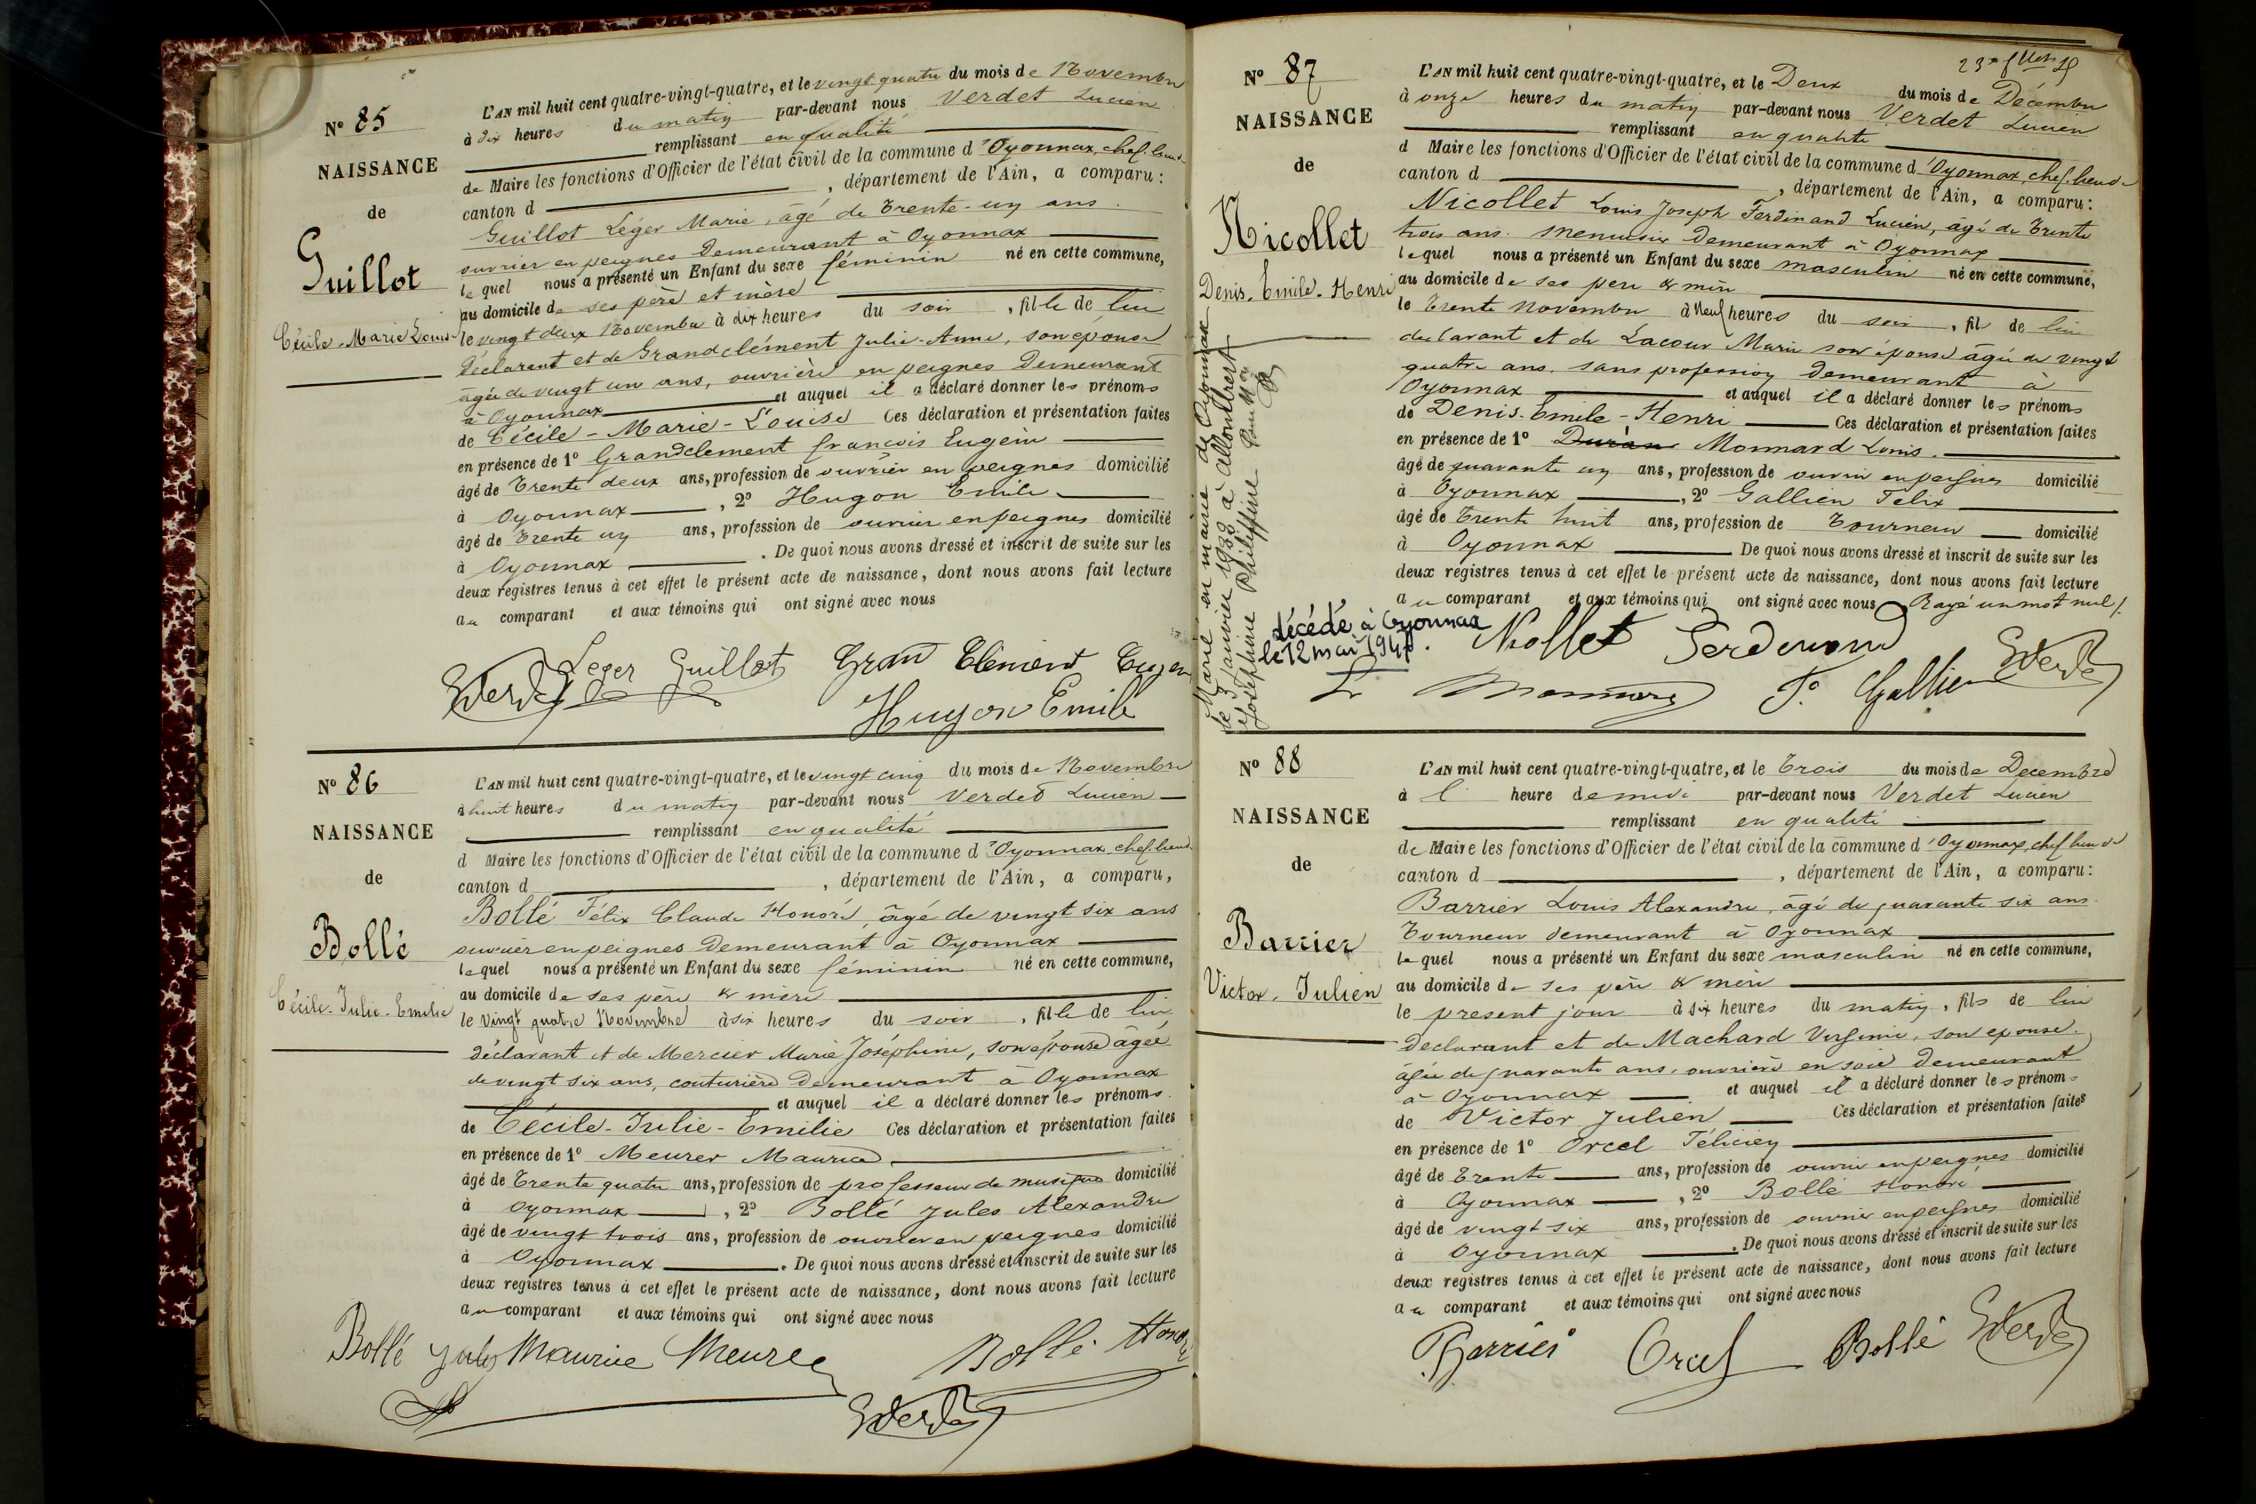 N° 85
NAISSANCE
de
Guillot
Cécile-Marie Louise
L'AN mil huit cent quatre-vingt-quatre, et le vingt quatre du mois de Novembre
à dix heures du matin par-devant nous Verdet Lucien
remplissant en qualité
de Maire les fonctions d'Officier de l'état civil de la commune d'Oyonnax, chef-lieu de
canton d , département de l'Ain, a comparu:
Guillot Léger Marie, âgé de Trente-un ans
ouvrier en peignes Demeurant à Oyonnax
lequel nous a présenté un Enfant du sexe féminin né en cette commune,
au domicile de ses père et mère
le vingt deux Novembre à dix heures du soir, fille de lui
déclarant et de Grandclément Julie-Anne, son épouse
âgée de vingt un ans, ouvrière en peignes Demeurant
à Oyonnax et auquel il a déclaré donner les prénoms
de Cécile-Marie-Louise Ces déclaration et présentation faites
en présence de 1° Grandclement françois Eugène
âgé de Trente deux ans, profession de ouvrier en peignes domicilié
à Oyonnax, 2° Hugon Emile
âgé de Trente un ans, profession de ouvrier en peignes domicilié
à Oyonnax. De quoi nous avons dressé et inscrit de suite sur les
deux registres tenus à cet effet le présent acte de naissance, dont nous avons fait lecture
au comparant et aux témoins qui ont signé avec nous
Leger Guillot Gran Clément Eugen
Verdet Hugon Emile
N° 86
NAISSANCE
de
Bollé
Cécile-Julie-Emilie
L'AN mil huit cent quatre-vingt-quatre, et le vingt cinq du mois de Novembre
à huit heures du matin par-devant nous Verdet Lucien
remplissant en qualité
d Maire les fonctions d'Officier de l'état civil de la commune d'Oyonnax, chef-lieu de
canton d , département de l'Ain, a comparu,
Bollé Félix Claude Honoré, âgé de vingt six ans
ouvrier en peignes Demeurant à Oyonnax
lequel nous a présenté un Enfant du sexe féminin né en cette commune,
au domicile de ses père & mère
le vingt quatre Novembre à six heures du soir, fille de lui
déclarant et de Mercier Marie Joséphine, son épouse âgée
de vingt six ans, couturière Demeurant à Oyonnax
et auquel il a déclaré donner les prénoms
de Cécile-Julie-Emilie Ces déclaration et présentation faites
en présence de 1° Meurer Maurice
âgé de Trente quatre ans, profession de professeur de musique domicilié
à Oyonnax, 2° Bollé Jules Alexandre
âgé de vingt trois ans, profession de ouvrier en peignes domicilié
à Oyonnax. De quoi nous avons dressé et inscrit de suite sur les
deux registres tenus à cet effet le présent acte de naissance, dont nous avons fait lecture
au comparant et aux témoins qui ont signé avec nous
Bollé Jules Maurice Meurer Bollé Honoré
Verdet
N° 87
NAISSANCE
de
Nicollet
Denis-Emile-Henri
Marié en mairie de Oyonnax
le 3 janvier 1938 à
Joséphine Philippine
décédé à Oyonnax
le 12 mai 1947.
L'AN mil huit cent quatre-vingt-quatre, et le Deux du mois de Décembre
à onze heures du matin par-devant nous Verdet Lucien
remplissant en qualité
d Maire les fonctions d'Officier de l'état civil de la commune d'Oyonnax, chef-lieu de
canton d , département de l'Ain, a comparu:
Nicollet Louis Joseph Ferdinand Lucien, âgé de Trente
trois ans. menuisier Demeurant à Oyonnax
lequel nous a présenté un Enfant du sexe masculin né en cette commune,
au domicile de ses père & mère
le Trente Novembre à Neuf heures du soir, fil de lui
declarant et de Lacour Marie son épouse âgée de vingt
quatre ans. sans profession demeurant à
Oyonnax et auquel il a déclaré donner les prénoms
de Denis-Emile-Henri Ces déclaration et présentation faites
en présence de 1° Monnard Louis.
âgé de quarante un ans, profession de ouvrier en peignes domicilié
à Oyonnax, 2° Gallien Félix
âgé de Trente huit ans, profession de Tourneur domicilié
à Oyonnax De quoi nous avons dressé et inscrit de suite sur les
deux registres tenus à cet effet le présent acte de naissance, dont nous avons fait lecture
au comparant et aux témoins qui ont signé avec nous Rayé un mot nul
Nicollet Ferdinand
Monnard F. Gallien Verdet
N° 88
NAISSANCE
de
Barrier
Victor-Julien
L'AN mil huit cent quatre-vingt-quatre, et le Trois du mois de Decembre
à l' heure de midi par-devant nous Verdet Lucien
remplissant en qualité
de Maire les fonctions d'Officier de l'état civil de la commune d'Oyonnax, chef-lieu de
canton d , département de l'Ain, a comparu:
Barrier Louis Alexandre, âgé de quarante six ans.
Tourneur demeurant à Oyonnax
lequel nous a présenté un Enfant du sexe masculin né en cette commune,
au domicile de ses père & mère
le présent jour à six heures du matin, fils de lui
declarant et de Machard Virginie, son epouse.
âgée de quarante ans, ouvrière en soie demeurant
à Oyonnax et auquel il a déclaré donner les prénoms
de Victor Julien Ces déclaration et présentation faites
en présence de 1° Orcel Félicien
âgé de Trente ans, profession de ouvrier en peignes domicilié
à Oyonnax, 2° Bollé Honoré
âgé de vingt six ans, profession de ouvrier en peignes domicilié
à Oyonnax. De quoi nous avons dressé et inscrit de suite sur les
deux registres tenus à cet effet le présent acte de naissance, dont nous avons fait lecture
au comparant et aux témoins qui ont signé avec nous
Barrier Orcel Bollé Verdet